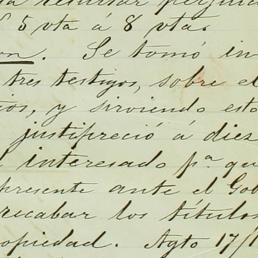 5 vta á 8 vta.
on. Se tomó in
tres testigos, sobre el
ios, y sirviendo esto
justipreció á diez
l interesado pª que
presente ante el Gob
recabar los títulos
opiedad. Agto 17/1